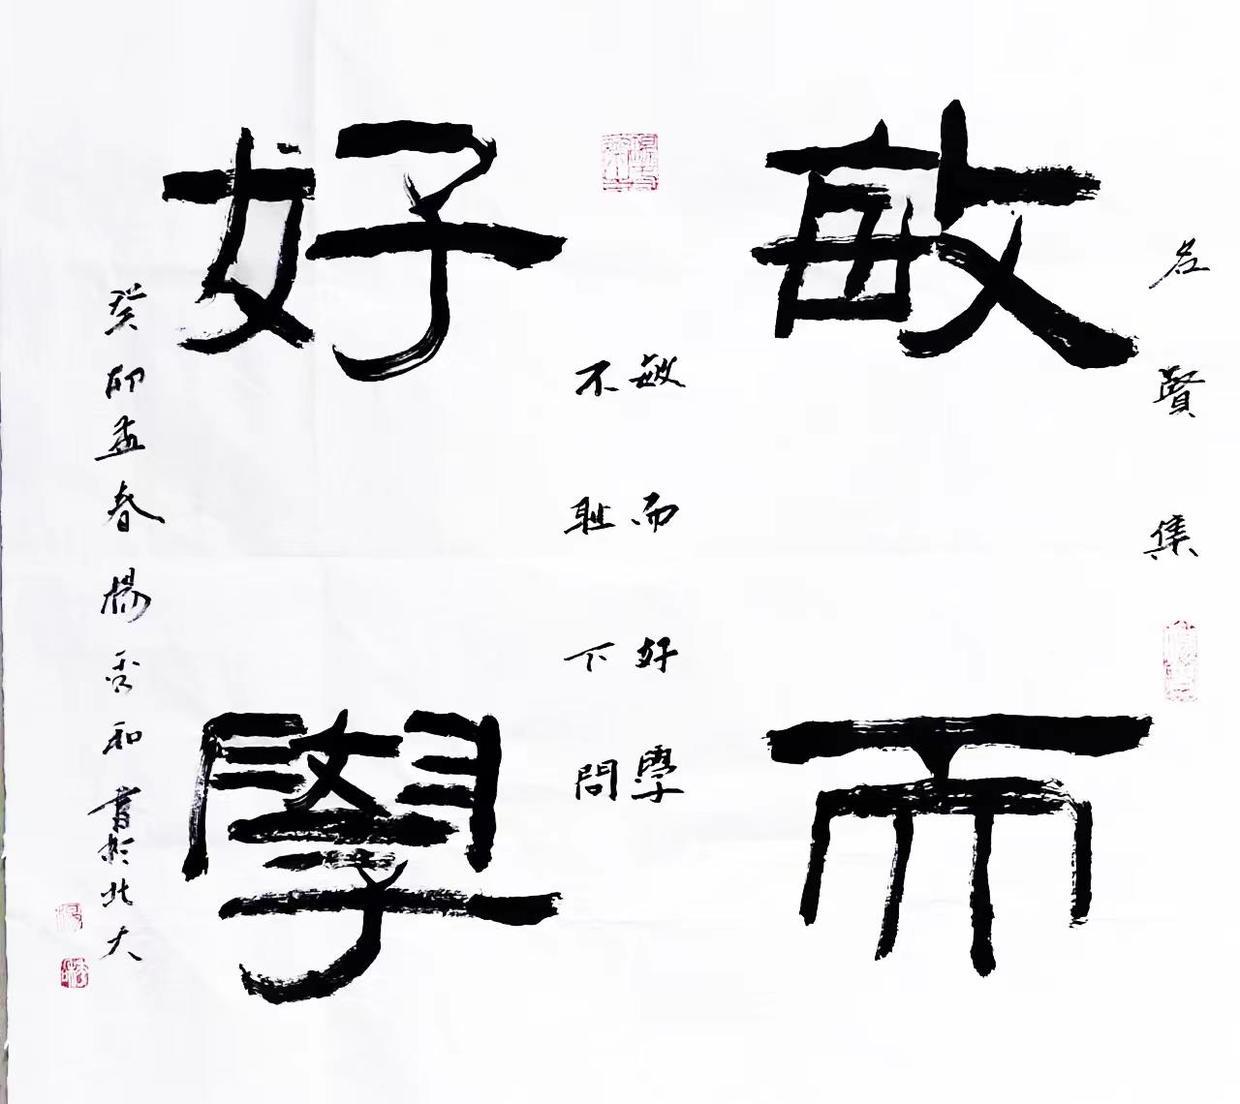 名賢集
敏而
敏而好學
不耻下問
好學
癸卯孟春楊秀和書於北大